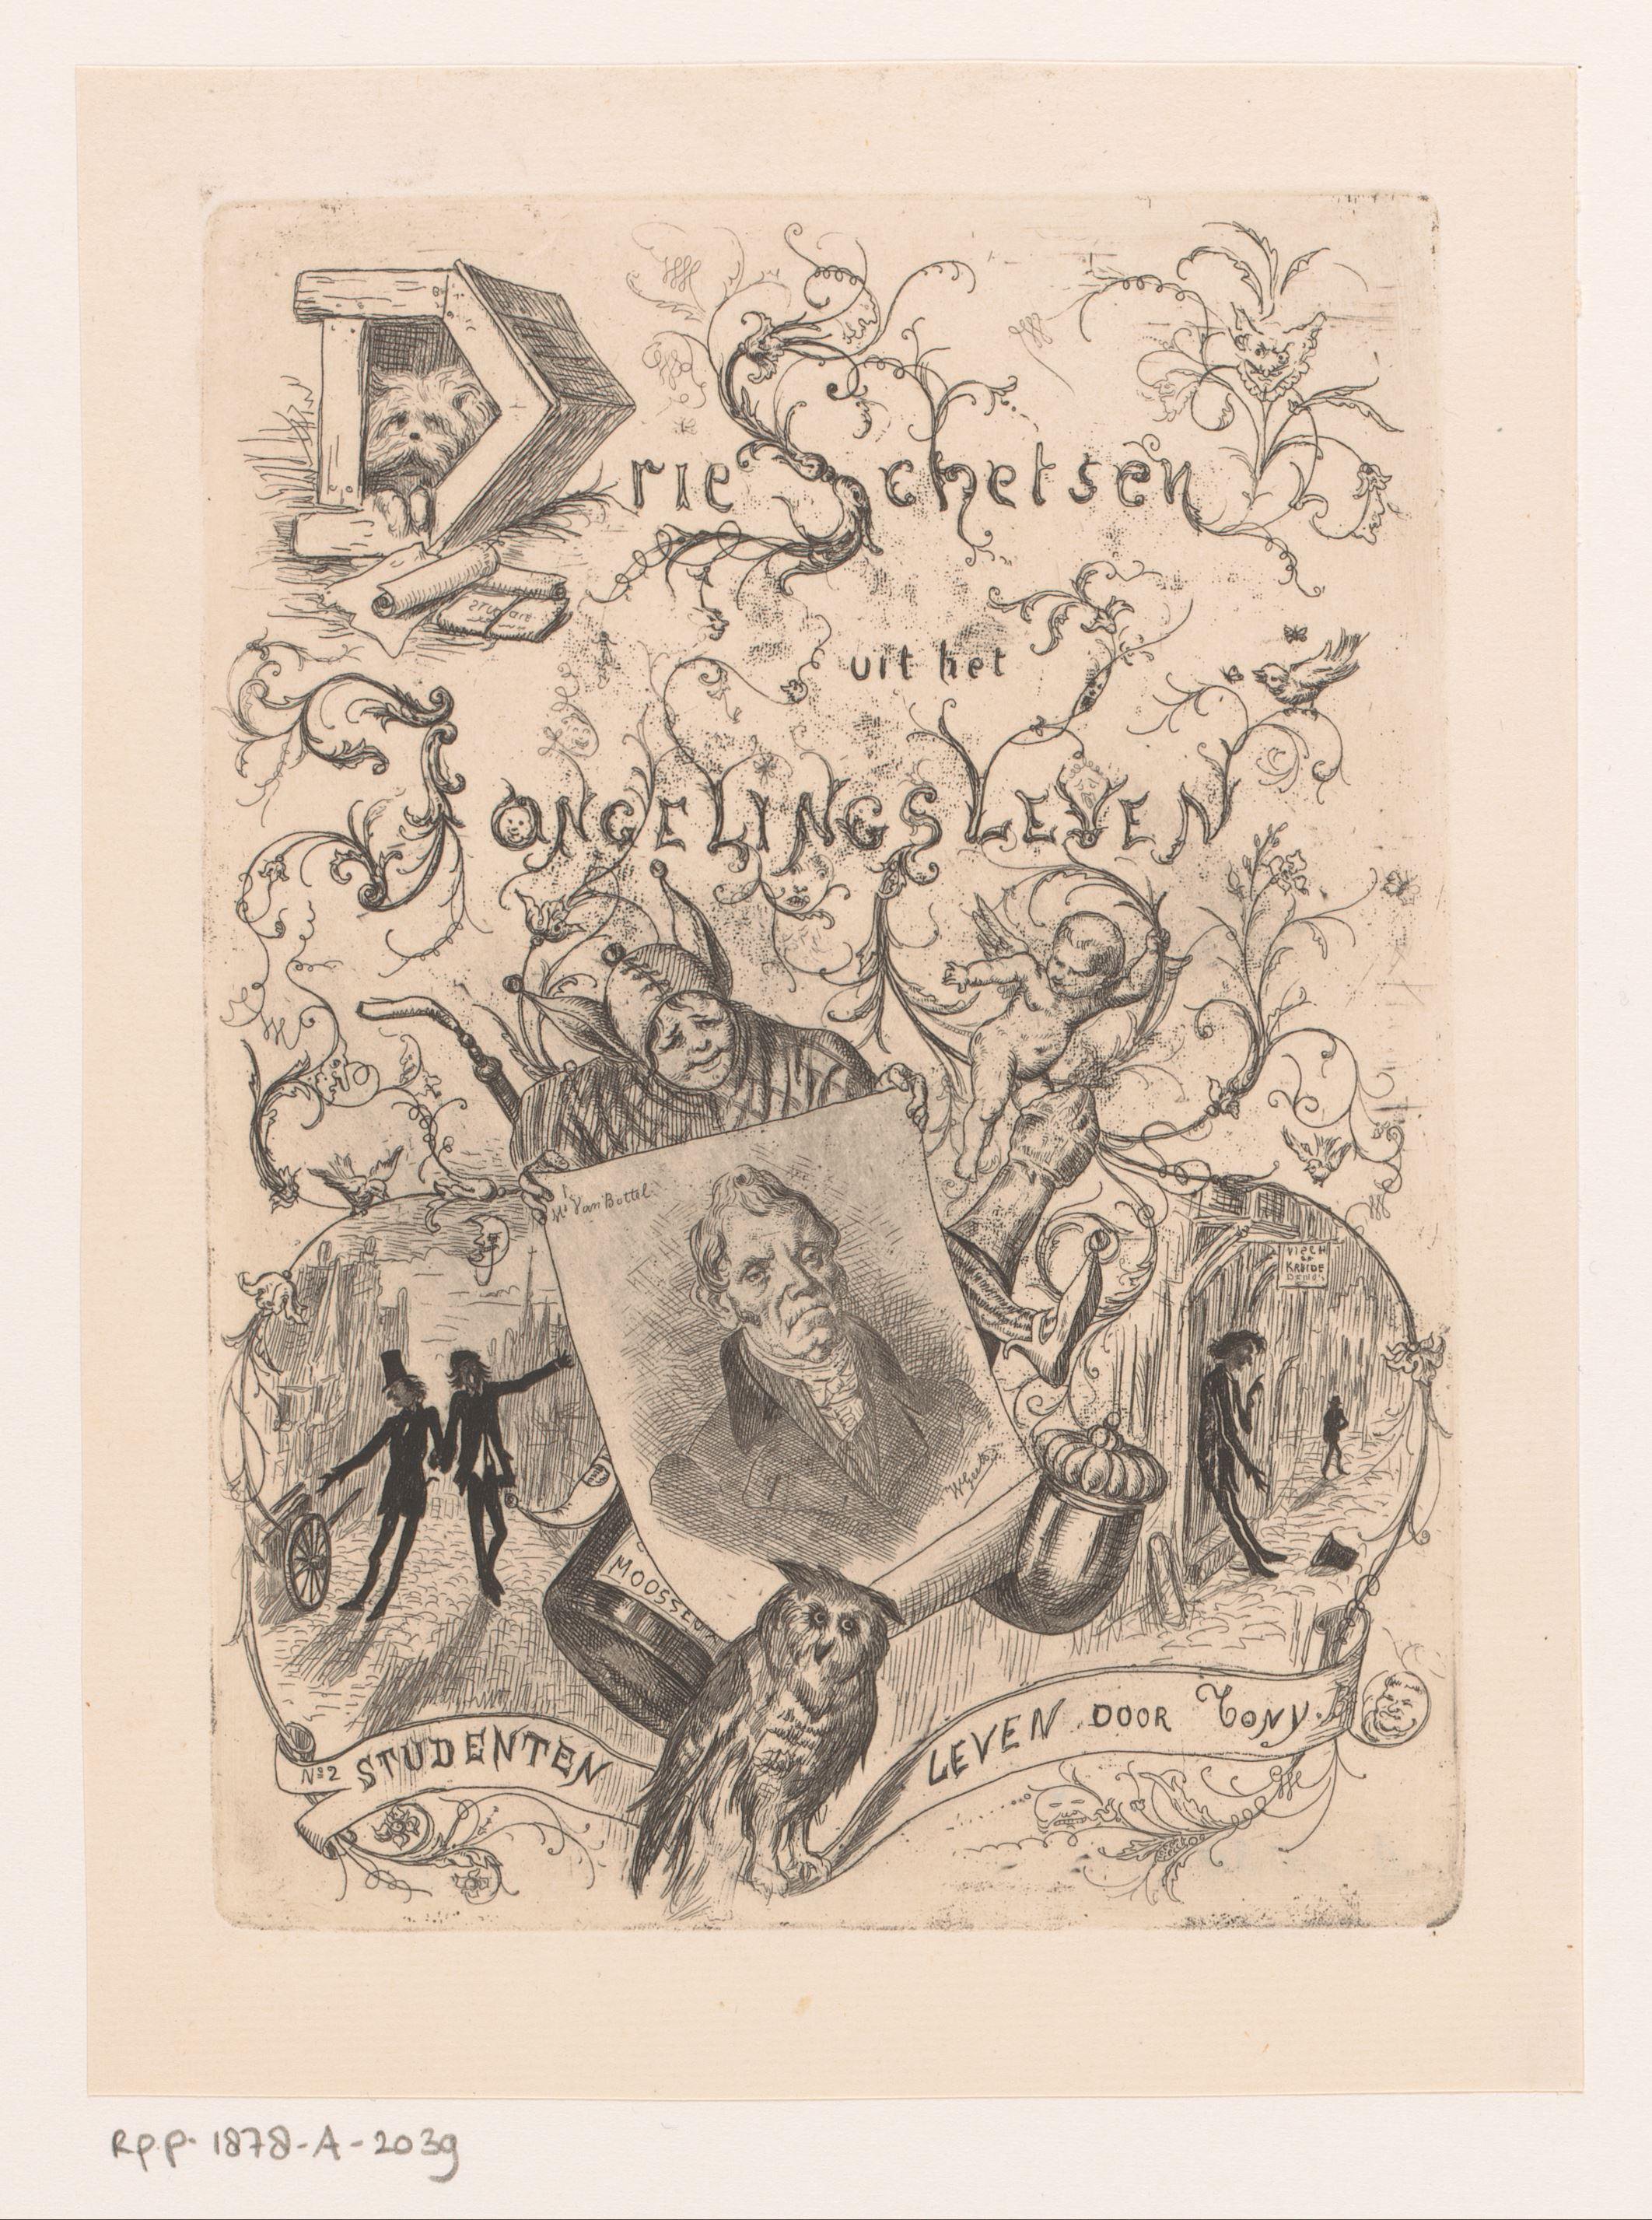 Drie Schetsen
uit het
JONGELINGSLEVEN
Mr Van Bottel
VISCH
KRUIDE
W Geets
MOOSSEUM
No 2 STUDENTEN
LEVEN DOOR Tony.
RP-P-1878-A-2039